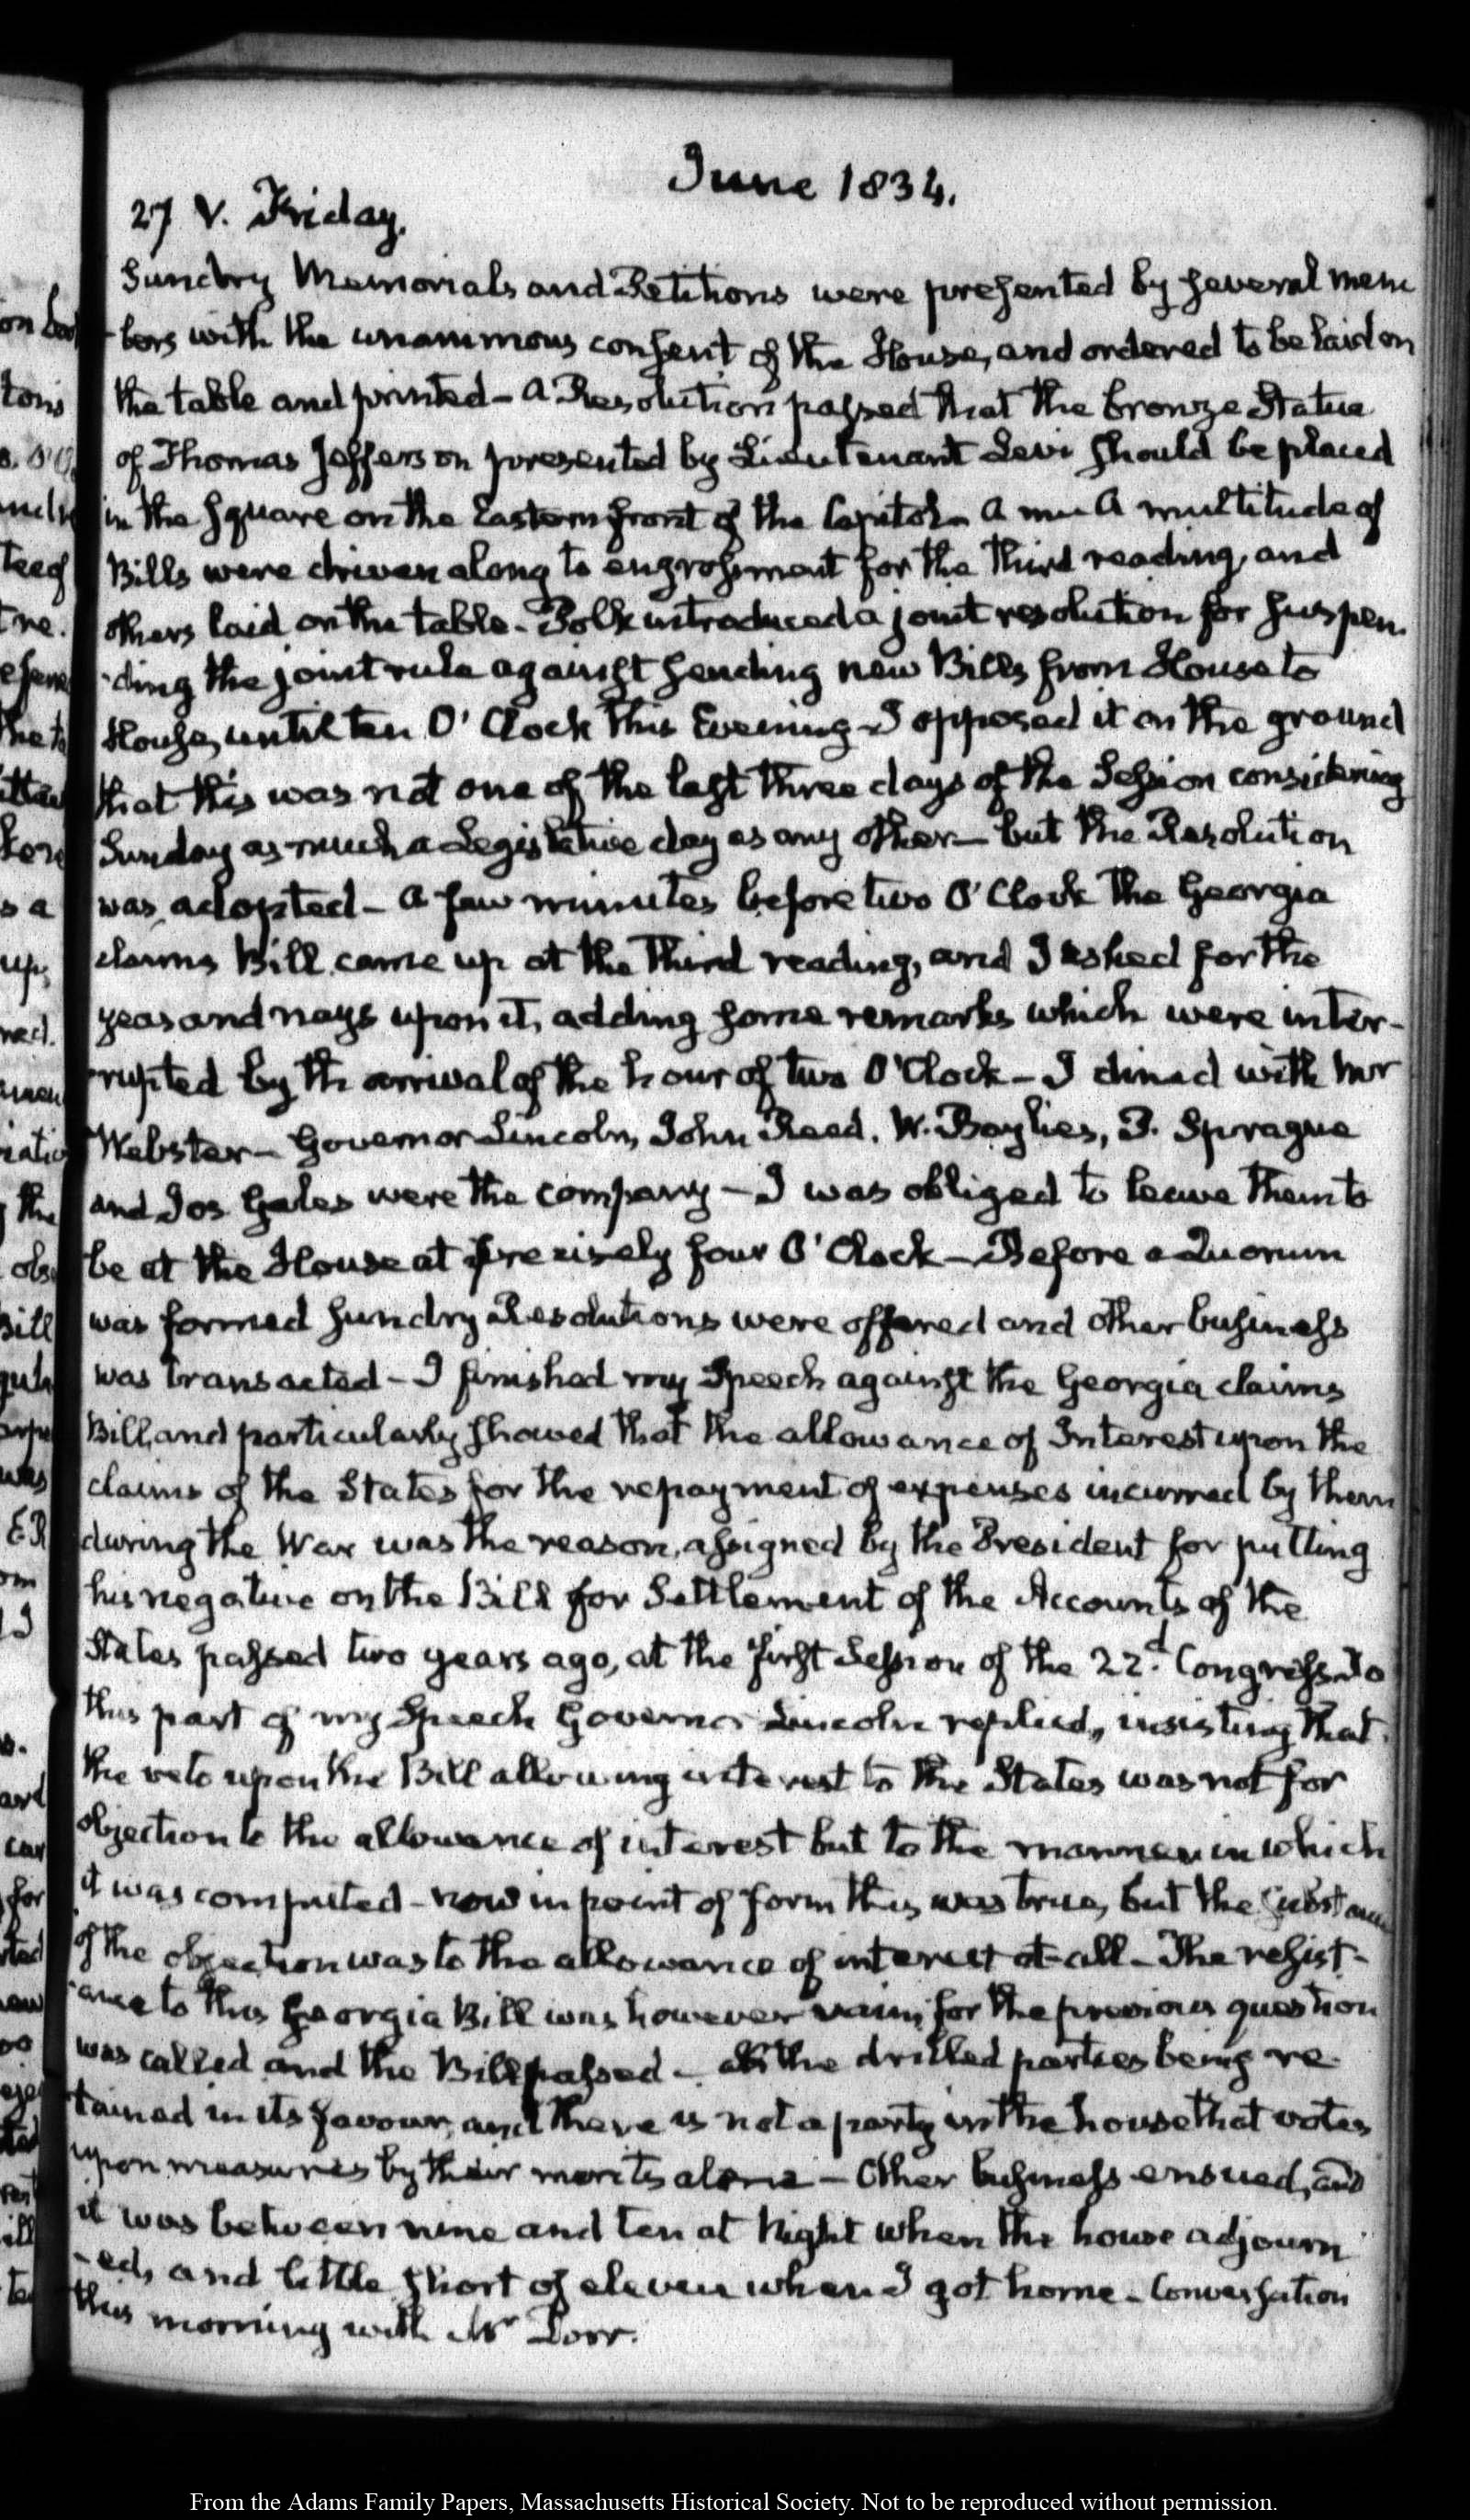 June 1834.
27 V. Friday.
Sundry Memorials and Petitions were presented by several mem
-bers with the unanimous consent of the House, and ordered to be laid on
the table and printed - A Resolution passed that the bronze Statue
of Thomas Jefferson presented by Lieutenant Levi should be placed
in the square on the Eastern front of the Capitol - A mu A multitude of
Bills were driven along to engrossment for the third reading, and
others laid on the table - Polk introduced a joint resolution for suspen
-ding the joint rule against sending new Bills from House to
House, until ten O'Clock this Evening - I opposed it on the ground
that this was not one of the last three days of the Session considering
Sunday as much a Legislative day as any other - but the Resolution
was adopted - A few minutes before two O'Clock the Georgia
claims Bill came up at the third reading, and I asked for the
yeas and nays upon it, adding some remarks which were inter-
rupted by th arrival of the hour of two O'Clock - I dined with Mr
Webster - Governor Lincoln, John Reed, W. Baylies, P. Sprague
and Jos Gales were the company - I was obliged to leave them to
be at the House at precisely four O'Clock - Before a Quorum
was formed sundry Resolutions were offered and other business
was transacted - I finished my Speech against the Georgia claims
Bill, and particularly showed that the allowance of Interest upon the
claims of the States for the repayment of expenses incurred by them
during the War was the reason, assigned by the President for putting
his negative on the Bill for Settlement of the Accounts of the
States passed two years ago, at the first Session of the 22.d Congress. To
this part of my Speech Governor Lincoln replied, insisting that
the veto upon the Bill allowing interest to the States was not for
objection to the allowance of interest but to the manner in which
it was computed - now in point of form this was true, but the substance
of the objection was to the allowance of interest at all - The resist-
-ance to this Georgia Bill was however vain, for the previous question
was called and the Bill passed - all the drilled parties being re
tained in its favour, and there is not a party in the house that votes
upon measures by their merits alone - Other business ensued, and
it was between nine and ten at Night when the house adjourn
-ed, and little short of eleven when I got home - Conversation
this morning with Mr Dorr.
From the Adams Family Papers, Massachusetts Historical Society. Not to be reproduced without permission.